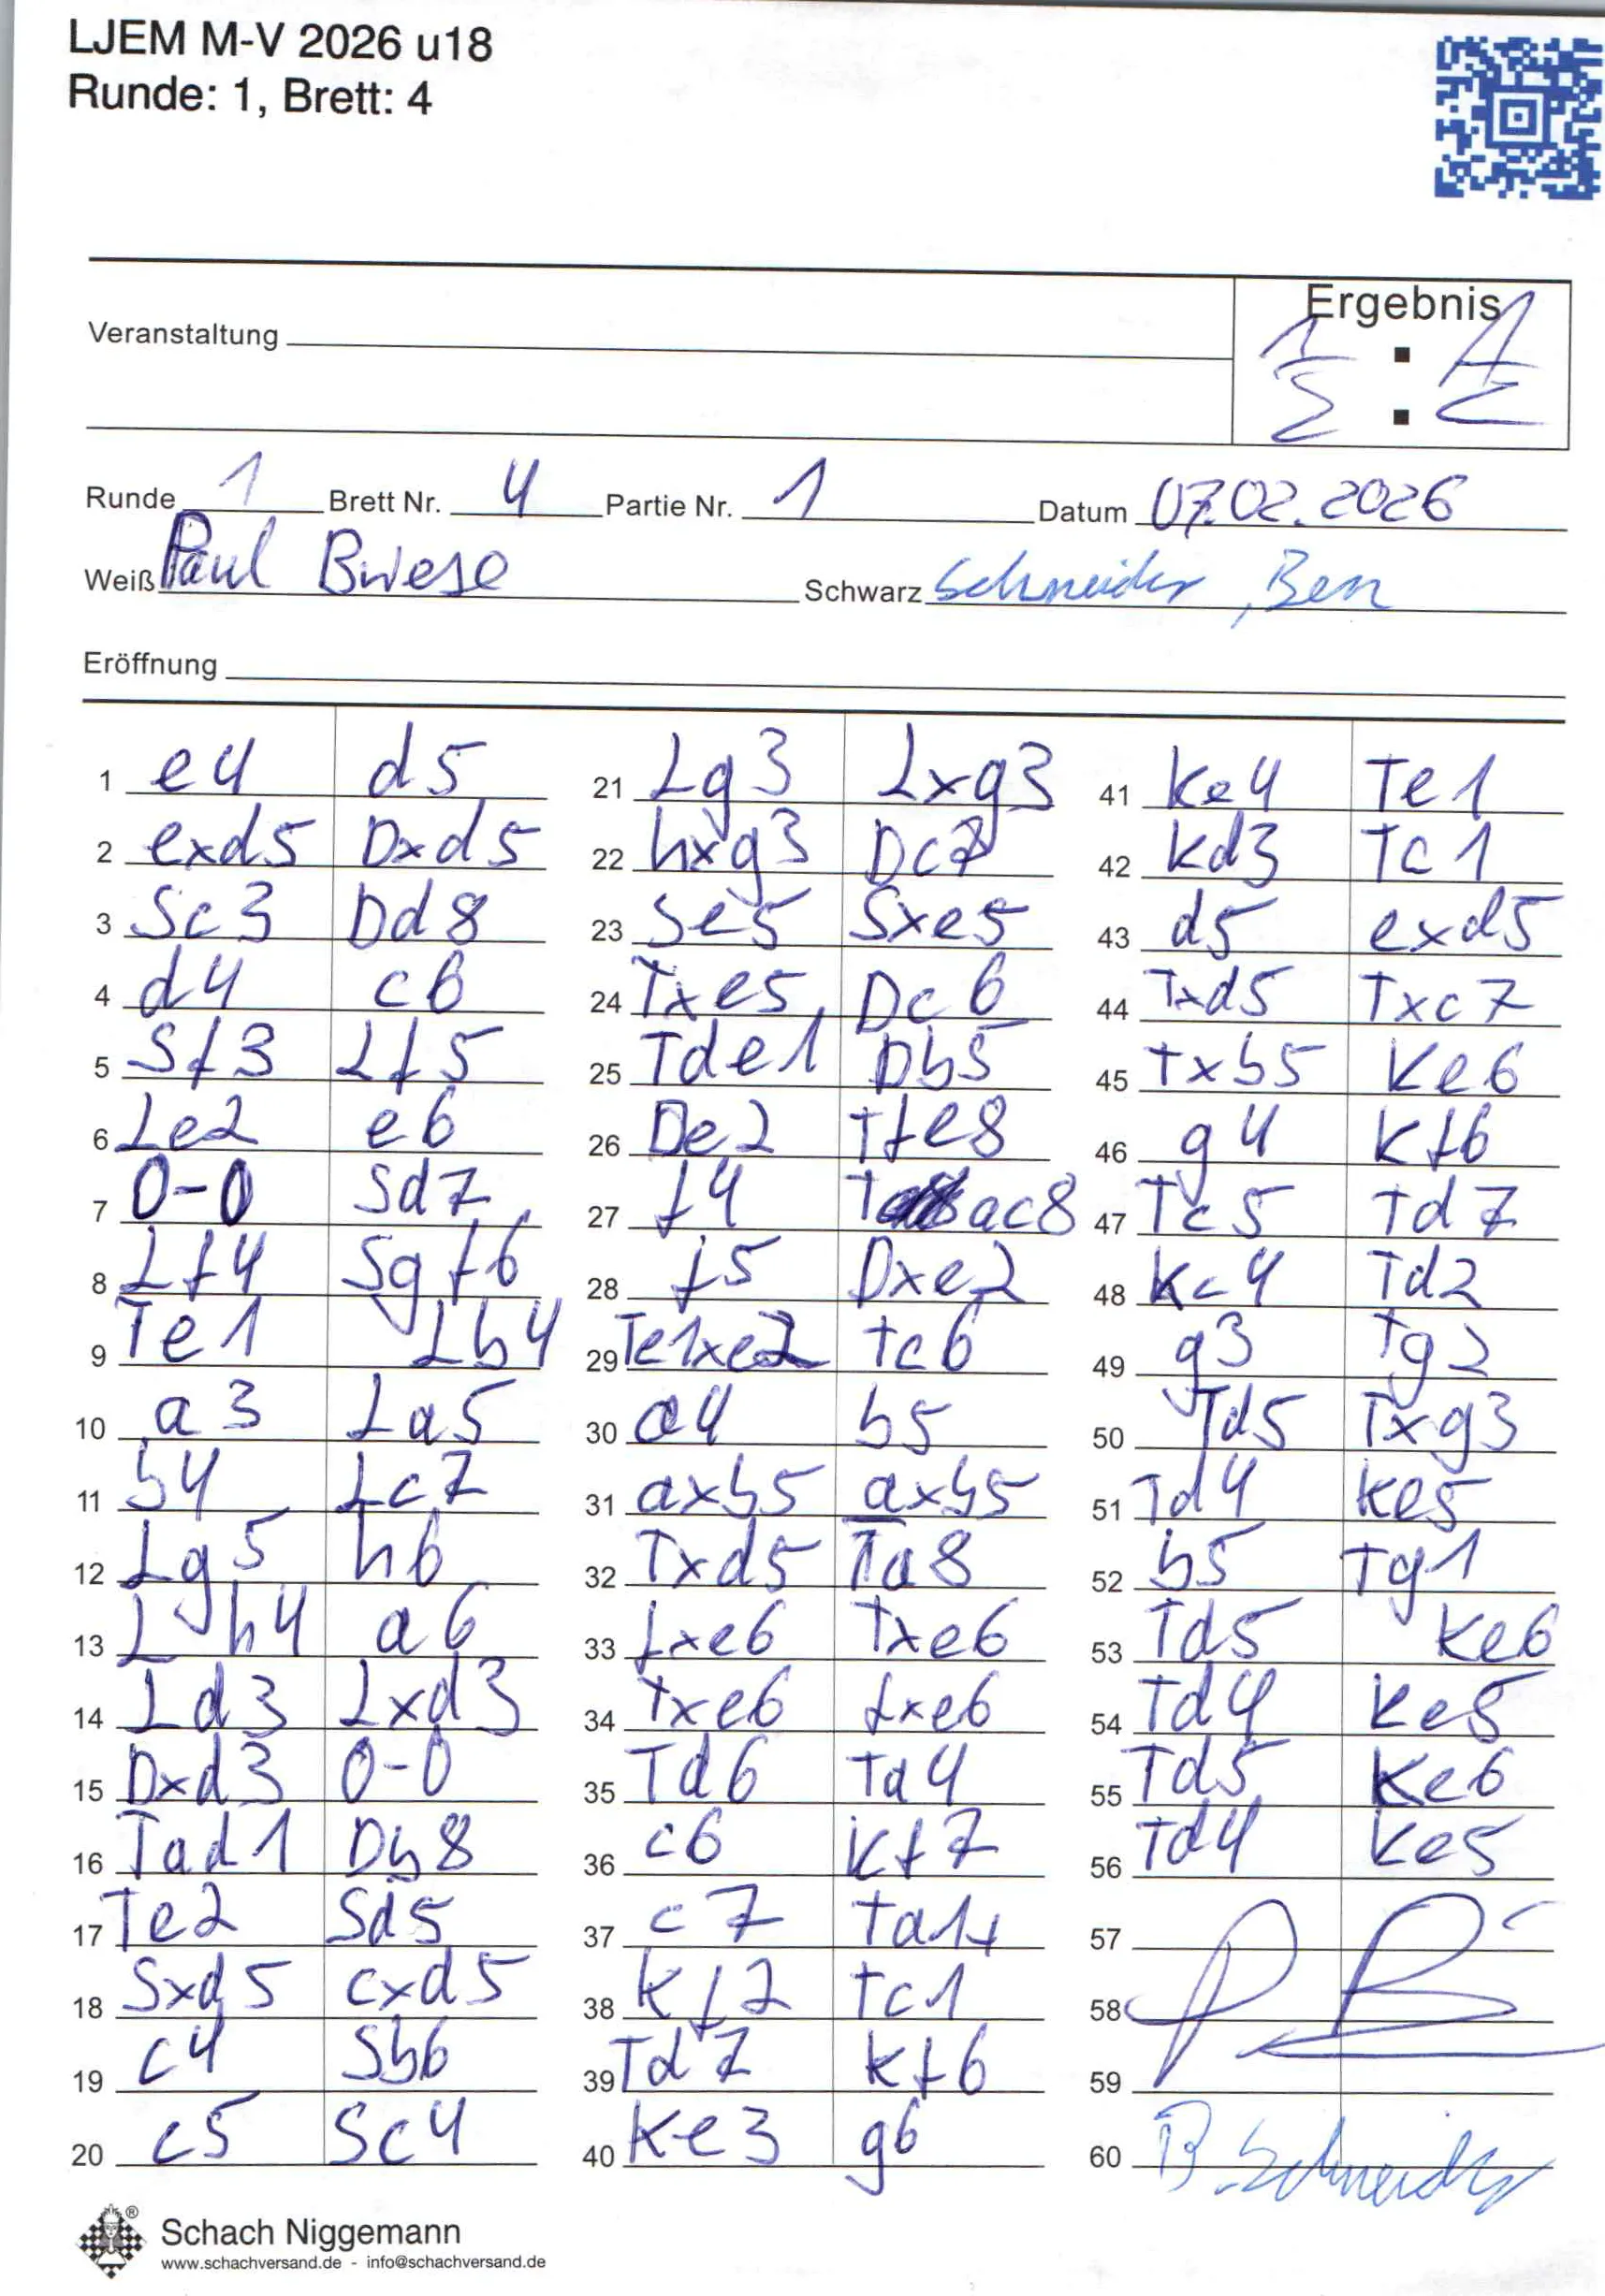 LJEM M-V 2026 u18
Runde: 1, Brett: 4
Ergebnis
Veranstaltung
1/2 : 1/2
Runde 1 Brett Nr. 4 Partie Nr. 1 Datum 07.02.2026
Weiß Paul Briese Schwarz Schneider, Ben
Eröffnung
1 e4 d5
2 exd5 Dxd5
3 Sc3 Dd8
4 d4 c6
5 Sf3 Lf5
6 Le2 e6
7 0-0 Sd7
8 Lf4 Sgf6
9 Te1 Lb4
10 a3 La5
11 b4 Lc7
12 Lg5 h6
13 Lh4 a6
14 Ld3 Lxd3
15 Dxd3 0-0
16 Tad1 Db8
17 Te2 Sd5
18 Sxd5 cxd5
19 c4 Sb6
20 c5 Sc4
21 Lg3 Lxg3
22 hxg3 Dc7
23 Se5 Sxe5
24 Txe5 Dc6
25 Tde1 Db5
26 De2 Tfe8
27 f4 Tac8
28 f5 Dxe2
29 Te1xe2 Tc6
30 a4 b5
31 axb5 axb5
32 Txd5 Ta8
33 fxe6 Txe6
34 Txe6 fxe6
35 Td6 Ta4
36 c6 Kf7
37 c7 Ta1+
38 Kf2 Tc1
39 Td7 Kf6
40 Ke3 g6
41 Ke4 Te1
42 Kd3 Tc1
43 d5 exd5
44 Txd5 Txc7
45 Txb5 Ke6
46 g4 Kf6
47 Tc5 Td7
48 Kc4 Td2
49 g3 Tg2
50 Td5 Txg3
51 Td4 Ke5
52 b5 Tg1
53 Td5 Ke6
54 Td4 Ke5
55 Td5 Ke6
56 Td4 Ke5
57
58
59
60 B. Schneider
Schach Niggemann
www.schachversand.de - info@schachversand.de